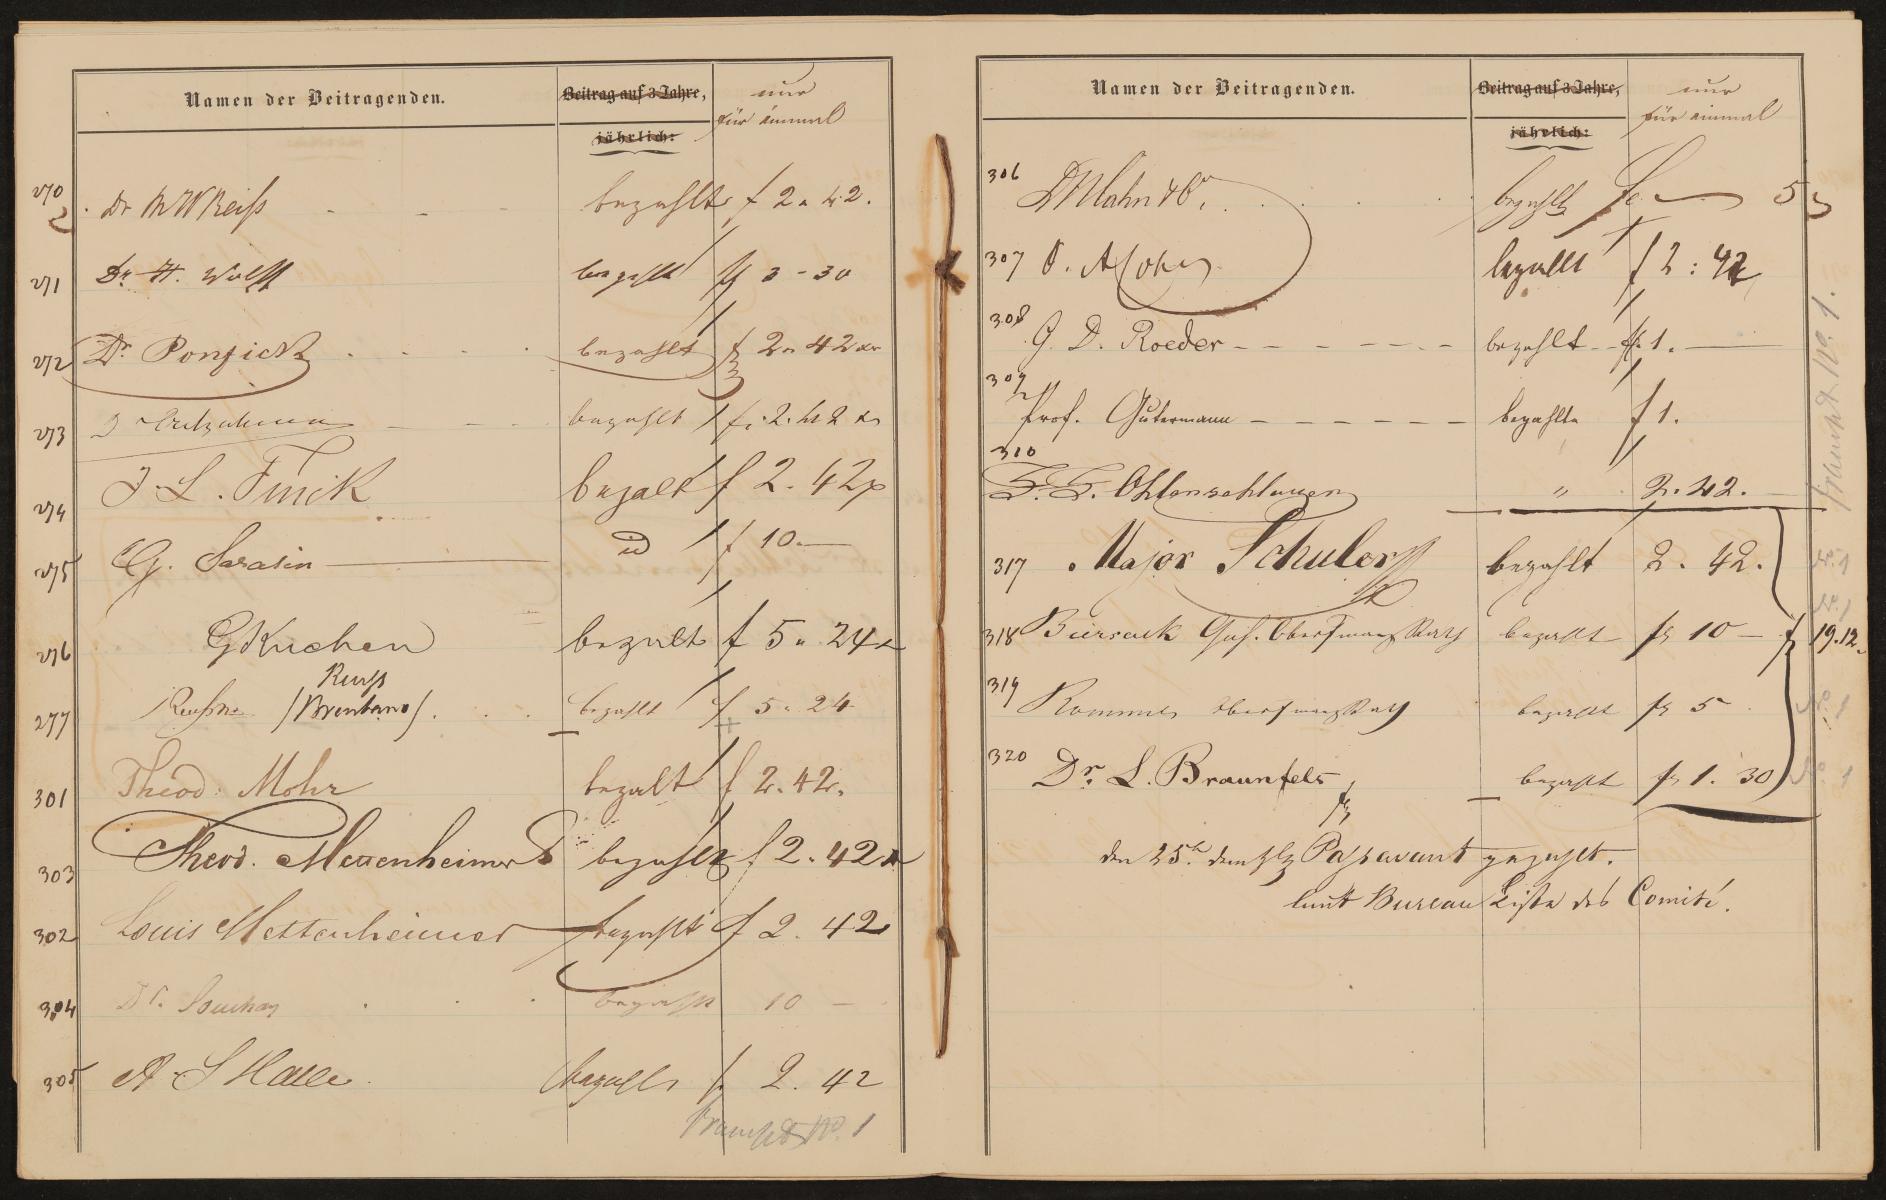 Namen der Beitragenden. Beitrag auf 3 Jahre, jährlich: nur für einmal
270 Dr M W Reiß bezahlt f 2 " 42.
271 Dr. H. Wolff bezahlt f 3 - 30
272 Dr. Ponfick bezahlt f 2 " 42 xr
273 Dr bezahlt f. 2. 42 x
274 J. L. Finck bezalt f 2. 42x
275 G. Sarasin id f 10.—
276 G Kuchen bezalt f 5 " 24 x
Reuss
277 (Brentano). bezahlt f 5 " 24
301 Theod. Mohr bezalt f 2. 42.
303 Theod. Mettenheimer bezahlt f 2. 42 x
302 Louis Mettenheimer bezahlt f 2. 42
304 Dr. Souchay bezahlt 10 —
305 A. S bezahlt f. 2. 42
Frankft No. 1
Namen der Beitragenden. Beitrag auf 3 Jahre, jährlich: nur für einmal
306 D. Mahn bezahlt 5
307 bezallt f 2 : 42
308 G. D. Roeder bezahlt fl. 1.—
309 Prof. Gutermann bezahlt f 1.
310 Ohlenschlager " 2. 42.
317 Major Schuler bezahlt 2. 42.
318 Biersack Geh. Oberfinanzrath bezahlt f 10 — f 19.12.
319 Rommel Oberfinanzrath bezahlt f 5
320 Dr. L. Braunfels bezahlt f 1. 30
den 25. dem H. Passavant gezahlt.
laut Bureau Liste des Comité.
Frankft No. 1.
No. 1
No. 1
No. 1
No. 1